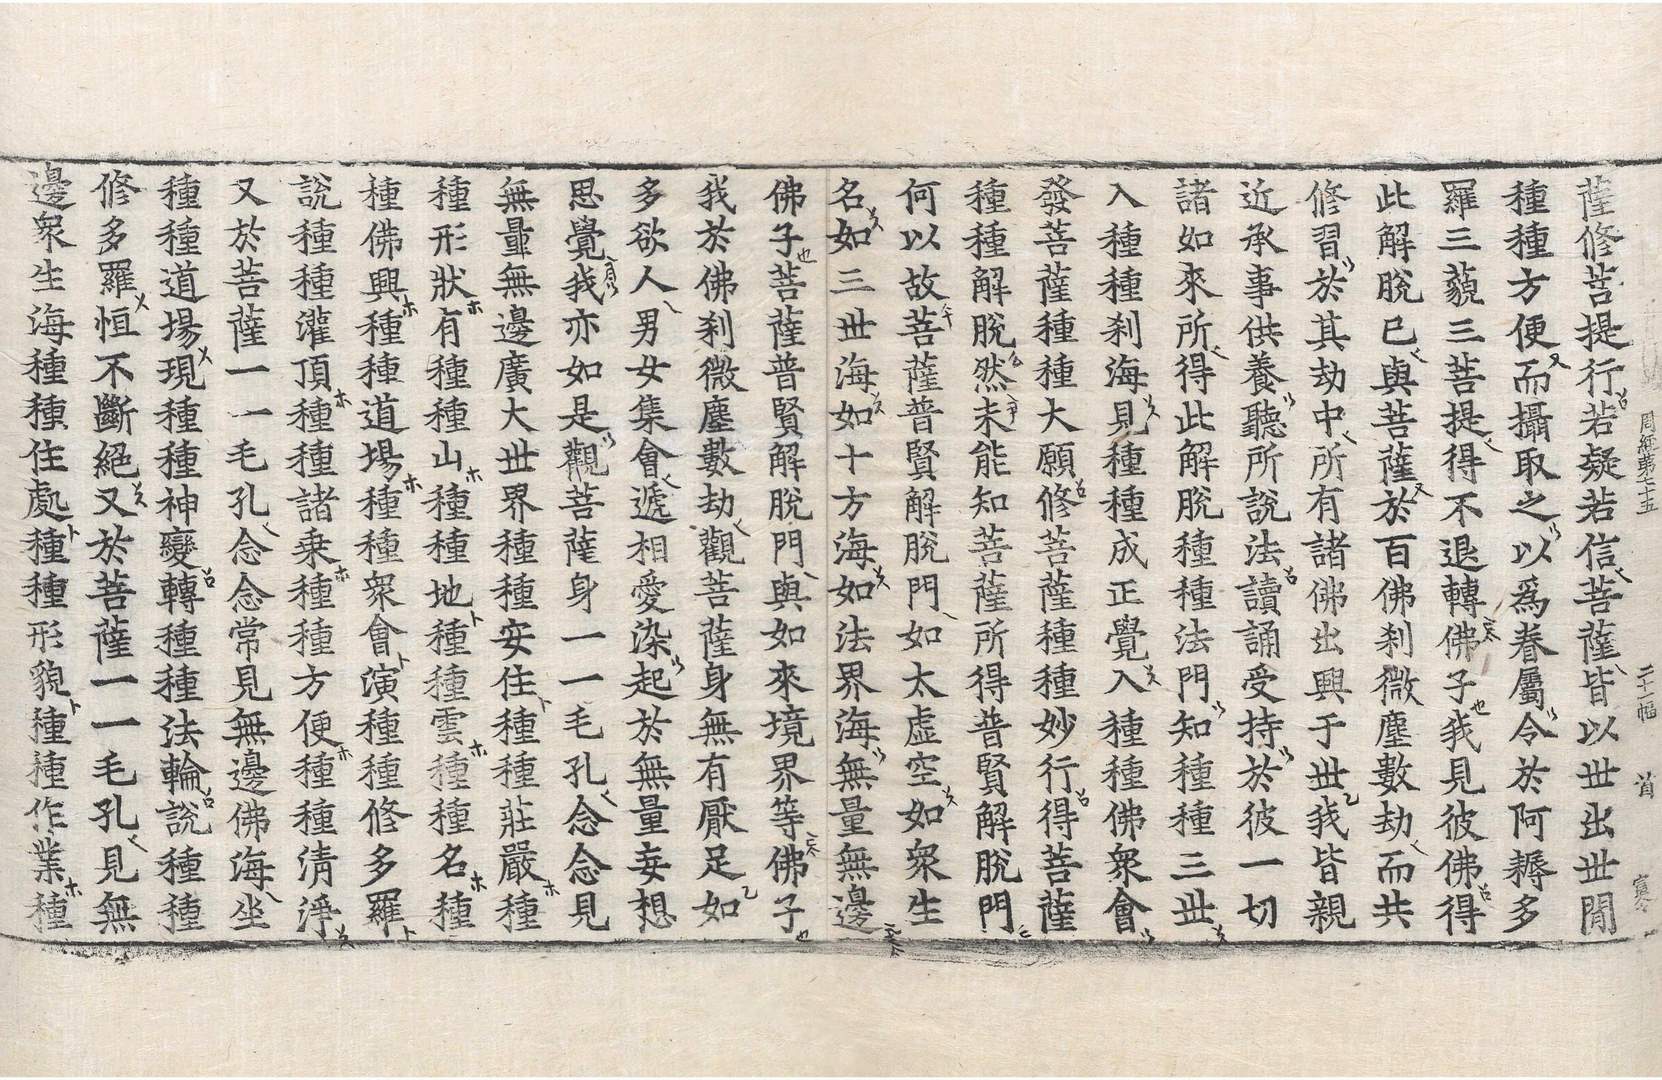 薩修菩提行若疑若信菩薩皆以世出世閒
種種方便而攝取之以爲眷屬令於阿耨多
羅三藐三菩提得不退轉佛子我見彼佛得
此解脫已與菩薩於百佛刹微塵數劫而共
修習於其劫中所有諸佛出興于世我皆親
近承事供養聽所說法讀誦受持於彼一切
諸如來所得此解脫種種法門知種種三世
入種種刹海見種種成正覺入種種佛衆會
發菩薩種種大願修菩薩種種妙行得菩薩
種種解脫然未能知菩薩所得普賢解脫門
何以故菩薩普賢解脫門如太虛空如衆生
名如三世海如十方海如法界海無量無邊
佛子菩薩普賢解脫門與如來境界等佛子
我於佛刹微塵數劫觀菩薩身無有厭足如
多欲人男女集會遞相愛染起於無量妄想
思覺我亦如是觀菩薩身一一毛孔念念見
無量無邊廣大世界種種安住種種莊嚴種
種形狀有種種山種種地種種雲種種名種
種佛興種種道場種種衆會演種種修多羅
說種種灌頂種種諸乘種種方便種種清淨
又於菩薩一一毛孔念念常見無邊佛海坐
種種道場現種種神變轉種種法輪說種種
修多羅恒不斷絕又於菩薩一一毛孔見無
邊衆生海種種住處種種形貌種種作業種
周經第七十五 二十一幅 首